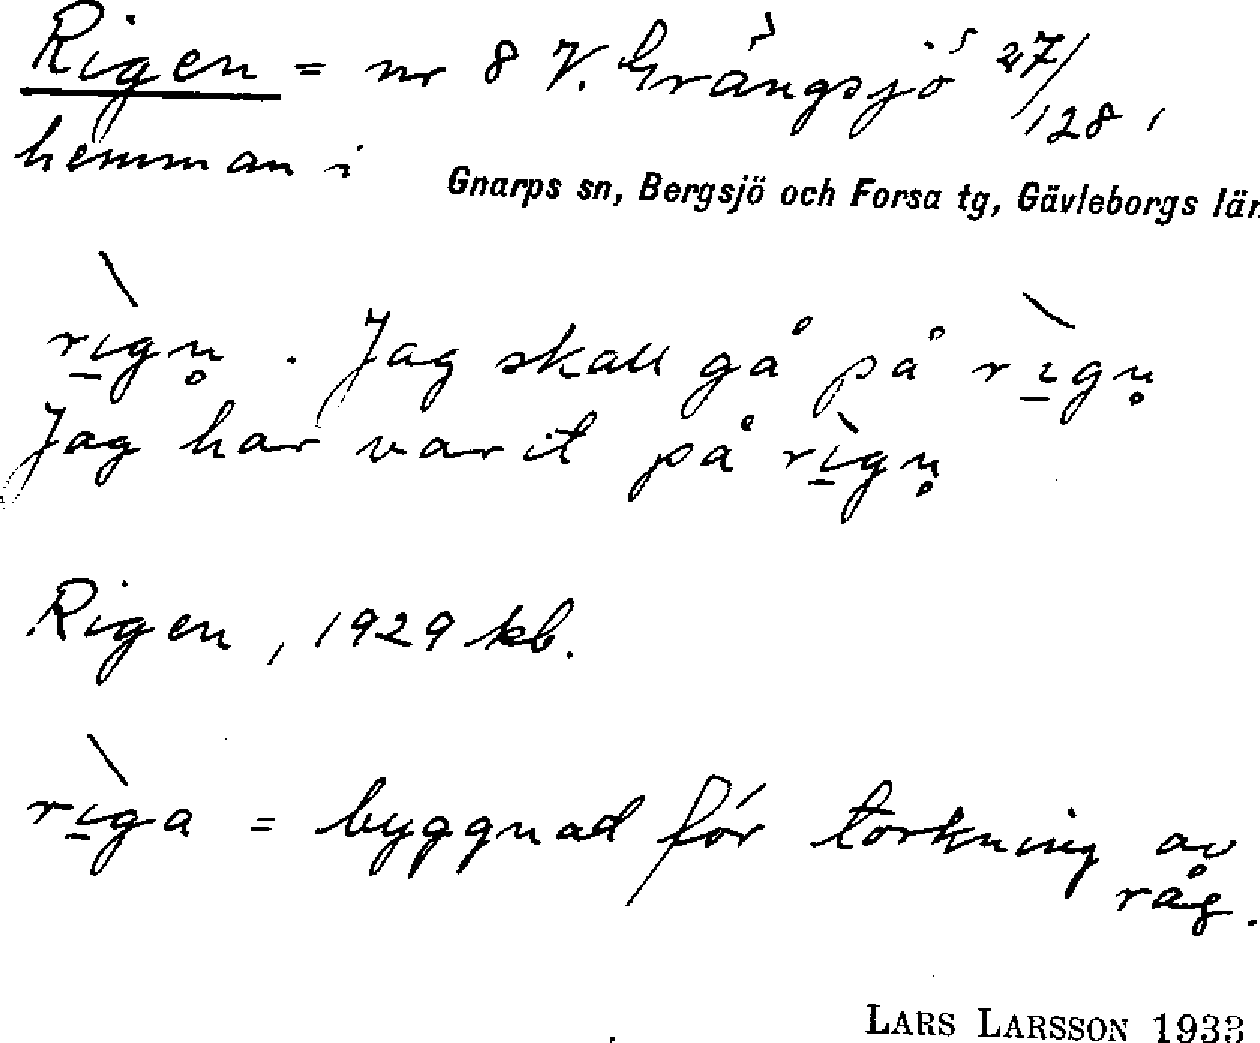 Rigen = nr 8 V. Grängsjö 27/128,
hemman i
Gnarps sn, Bergsjö och Forsa tg, Gävleborgs län
rı̱̀gn̥ . Jag skall gå på rı̱̀gn̥
Jag har varit på rı̱̀gn̥
Rigen, 1929 kb.
rı̱̀ga = byggnad för torkning av
råg.
LARS LARSSON 1933